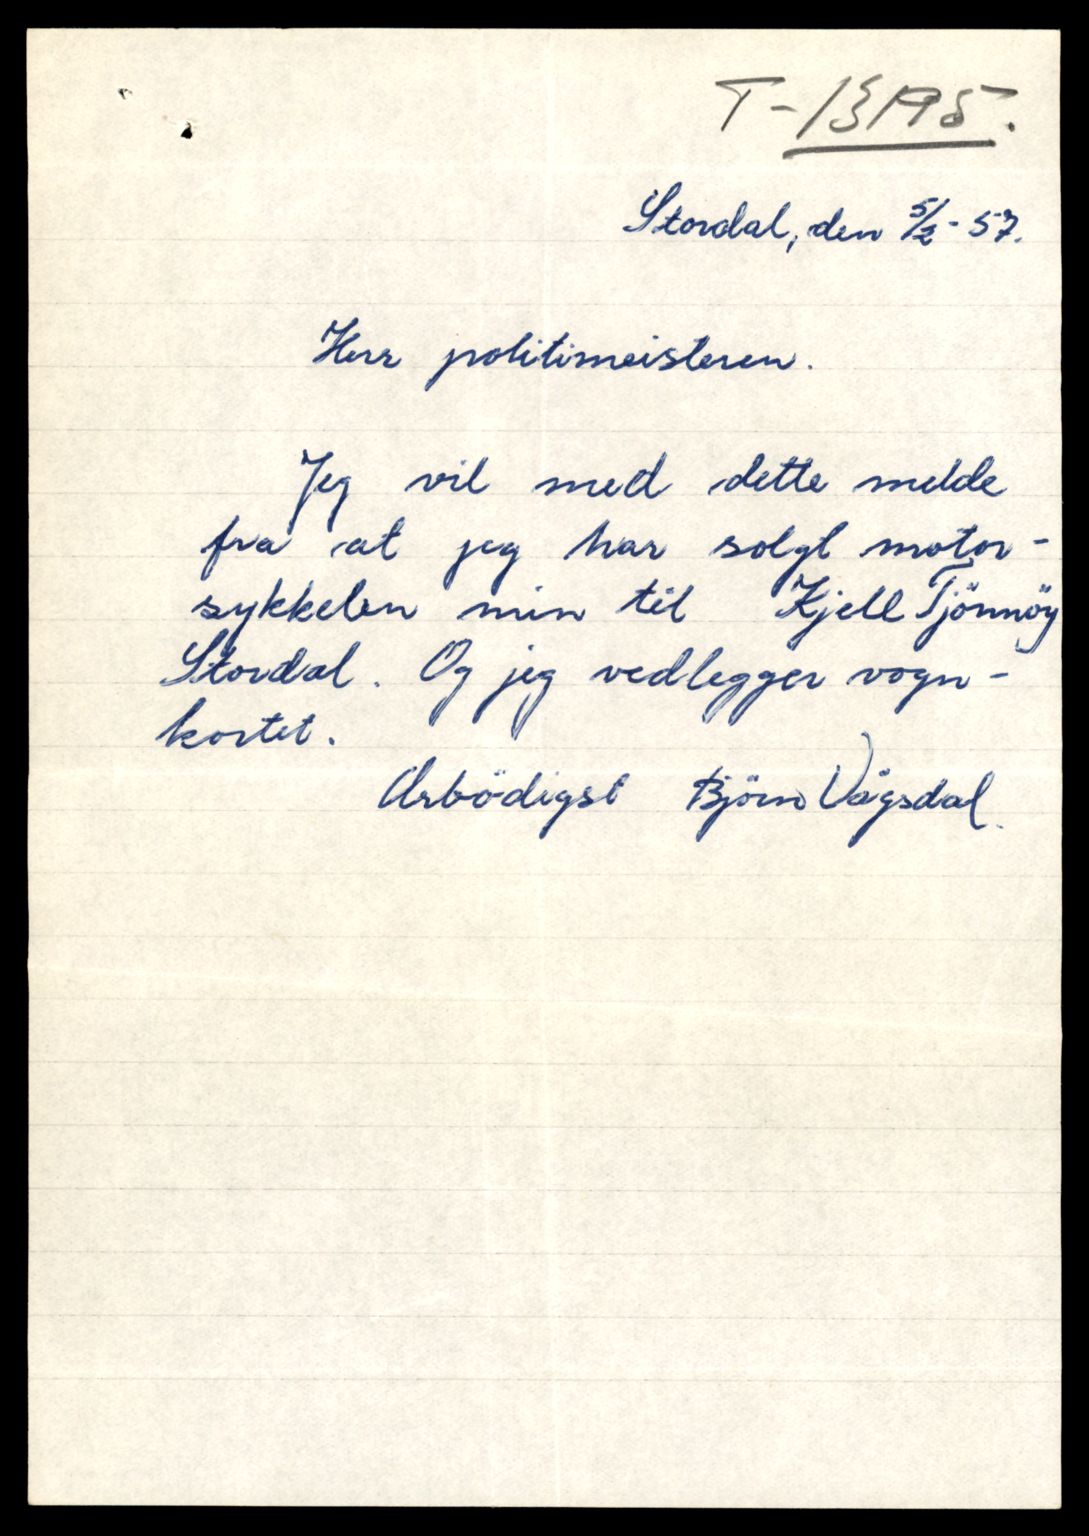 T-13195.
Stordal, den 5/2-57.
Herr politimeisteren.
Jeg vil med dette melde
fra at jeg har solgt motor-
sykkelen min til Kjell Tjönnöy
Stordal. Og jeg vedlegger vogn-
kortet.
Ærbödigst Björn Vågsdal.